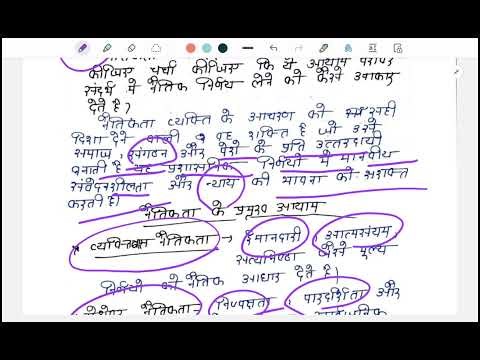 कीजिए चर्चा कीजिए कि ये आयाम
संदर्भ में नैतिक निर्णय लेने को कैसे आकार
देते है?
नैतिकता व्यक्ति के आचरण को सही
दिशा देने वाली वह शक्ति है जो उसे
समाज, संगठन और पेशे के प्रति उत्तरदायी
बनाती है यह प्रशासनिक निर्णयों में मानवीय
संवेदनशीलता और न्याय की भावना को सशक्त
करती है।
नैतिकता के प्रमुख आयाम
व्यक्तिगत नैतिकता → ईमानदारी, आत्मसंयम,
सत्यनिष्ठा जैसे मूल्य
निर्णयों को नैतिक आधार देते है।
पेशेवर नैतिकता → निष्पक्षता, पारदर्शिता और